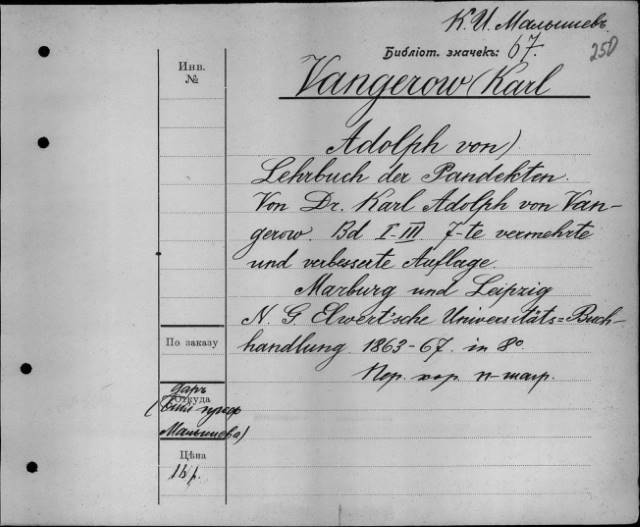 К. И. Малышевъ
Библіот. значекъ: 67.
250
Инв.
№
Vangerow (Karl
Adolph von)
Lehrbuch der Pandekten.
Von Dr. Karl Adolph von Van-
gerow. Bd I-III 7-te vermehrte
und verbesserte Auflage.
Marburg und Leipzig
N. G. Elwert'sche Universitäts=Buch-
handlung 1863-67. in 8º
Пер. кор.
По заказу
Даръ
Откуда
Малышева)
Цѣна
р.